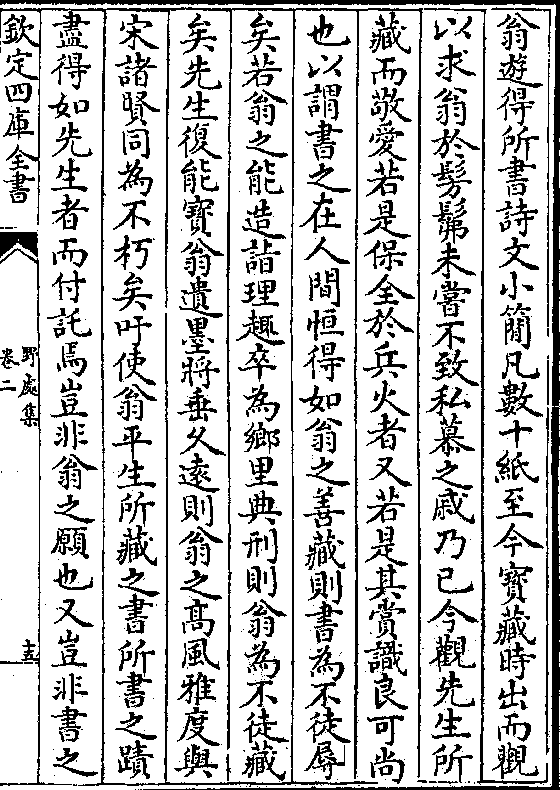 翁遊得所書詩文小簡凡數十紙至今寶藏時出而觀
以求翁於髣髴未嘗不致私慕之戚乃已今觀先生所
藏而敬愛若是保全於兵火者又若是其賞識良可尚
也以謂書之在人間恒得如翁之善藏則書為不徒辱
矣若翁之能造詣理趣卒為鄉里典刑則翁為不徒藏
矣先生復能寶翁遺墨將垂久遠則翁之高風雅度與
宋諸賢同為不朽矣吁使翁平生所藏之書所書之蹟
盡得如先生者而付託焉豈非翁之願也又豈非書之
欽定四庫全書
野處集
卷二
十五